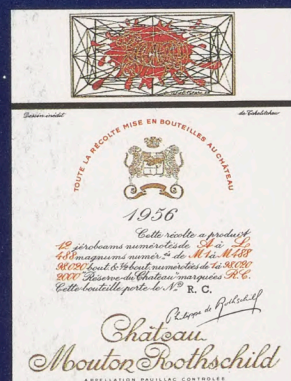 Dessin inédit de Tchelitchew
TOUTE LA RÉCOLTE MISE EN BOUTEILLES AU CHÂTEAU
1956
Cette récolte a produit,
12 jéroboams numérotés de A à L
488 magnums numér.ˢ de M1 à M488
98020 bout. & ½ bout. numérotées de 1 à 98020
2000 "Réserve du Château" marquées R.C.
Cette bouteille porte le N.º R. C.
Philippe de Rothschild
Château
Mouton Rothschild
APPELLATION PAUILLAC CONTRÔLÉE